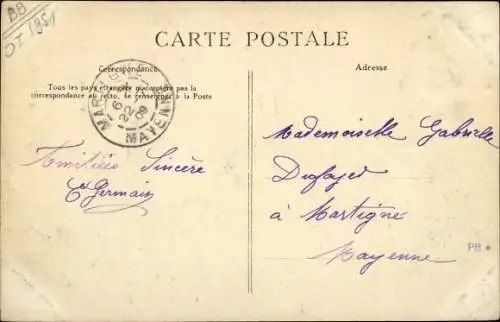 BB
CARTE POSTALE
Correspondance
Adresse
Tous les pays étrangers n'acceptent pas la
correspondance au recto, se renseigner à la Poste
MAYENNE
Mademoiselle Gabrielle
Amitiés Sincère
Germain
à Martigné
Mayenne
PB